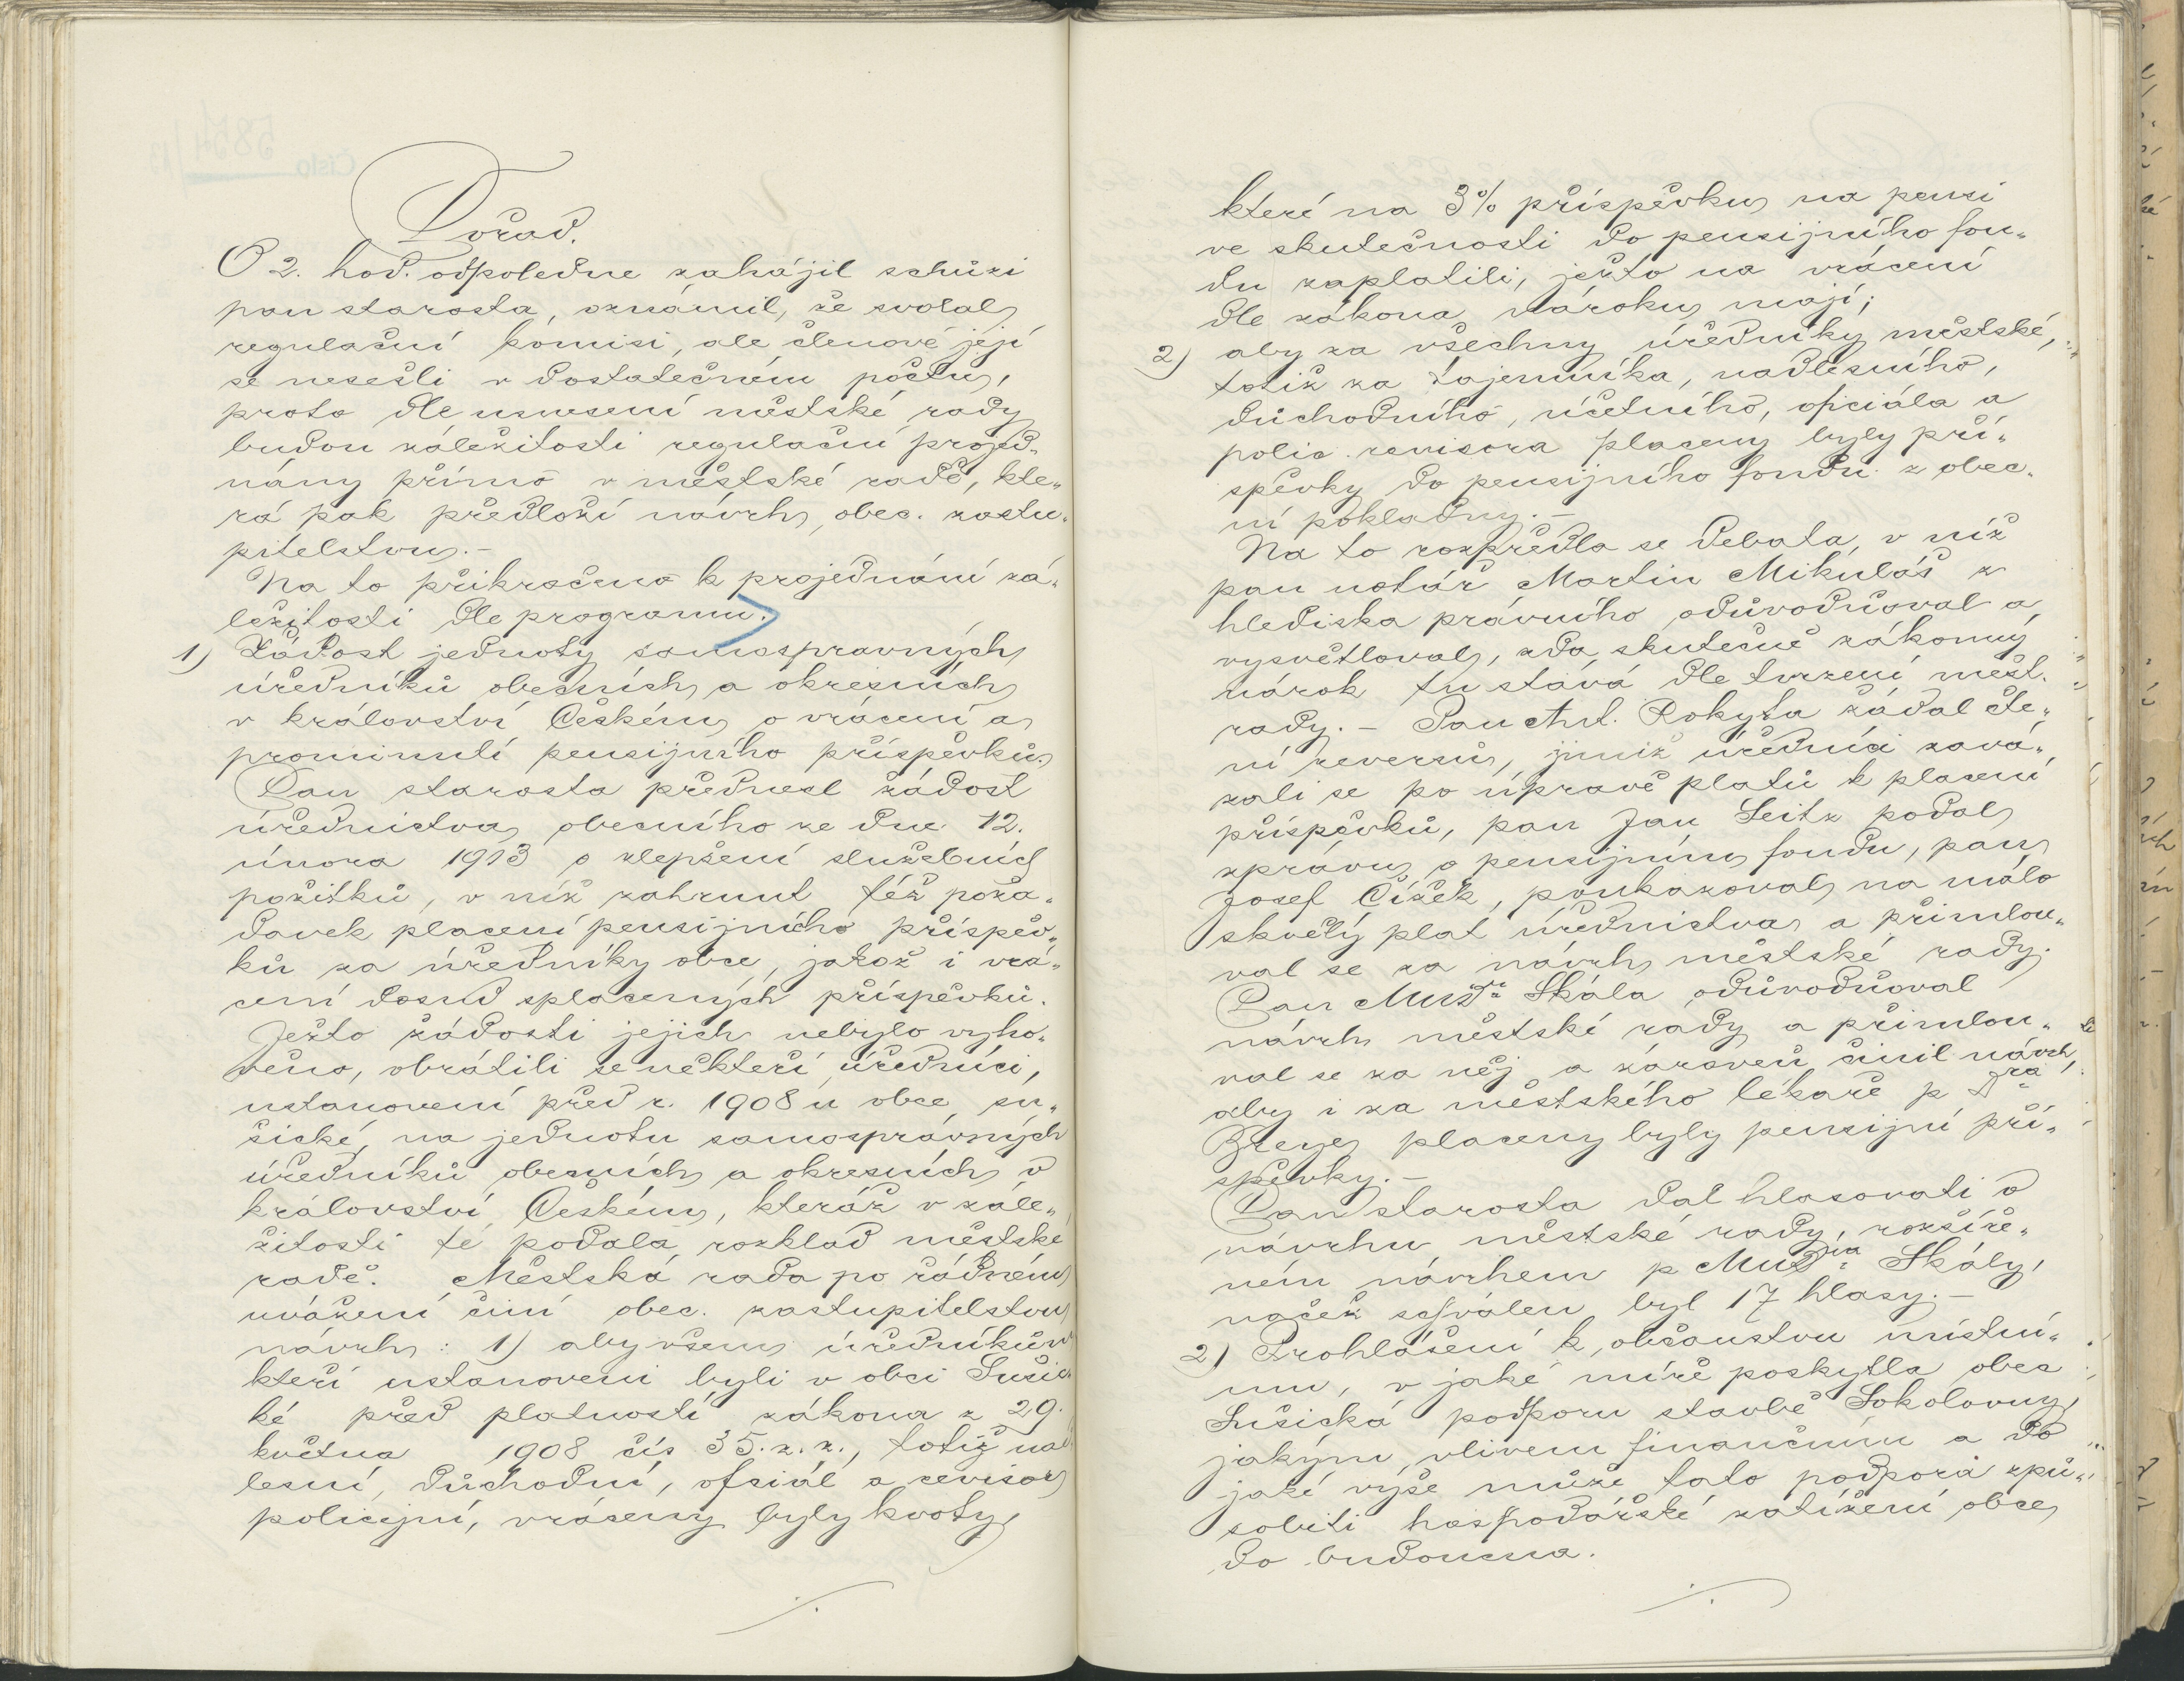 Pořad.
O 2. hod. odpoledne zahájil schůzi
pan starosta, oznámil, že svolal
regulační komisi, ale členové její
se nesešli v dostatečném počtu,
proto dle usnesení městské rady
budou záležitosti regulační projed-
nány přímo v městské radě, kte-
rá pak předloží návrh obec. zastu-
pitelstvu.-
Na to přikročeno k projednání zá-
ležitosti dle programu.
1) Žádost jednoty samosprávných
úředníků obecních a okresních
v království Českém o vrácení a
prominutí pensijního příspěvku.
Pan starosta přednesl žádost
úřednictva obecního ze dne 12.
února 1913 o zlepšení služebních
požitků, v níž zahrnut též poža-
davek placení pensijního příspěv-
ků za úředníky obce, jakož i vrá-
cení dosud splacených příspěvků.
Ježto žádosti jejich nebylo vyho-
věno, obrátili se někteří úředníci,
ustanovení před r. 1908 u obce su-
šické, na jednotu samosprávných
úředníků obecních a okresních v
království Českém, kteráž v zále-
žitosti té podala rozklad městské
radě. Městská rada po řádném
uvážení činí obec. zastupitelstvu
návrh: 1) aby všem úředníkům
kteří ustanoveni byli v obci Sušic-
ké před platností zákona z 29.
května 1908 čís 35. z. z., totiž nad
lesní, důchodní, ofciál a revisor
policejní, vráceny byly kvoty,
které na 3% příspěvku na pensi
ve skutečnosti do pensijního fon-
du zaplatili, ježto na vrácení
dle zákona nároku mají;
2) aby za všechny úředníky městské,
totiž za tajemníka, nadlesního,
důchodního, účetního, oficiála a
polic. revisora placeny byly pří-
spěvky do pensijního fondu z obec-
ní pokladny.-
Na to rozpředla se debata, v níž
pan notář Martin Mikuláš z
hlediska právního odůvodňoval a
vysvětloval, zda skutečně zákonný
nárok tu stává dle tvrzení měst.
rady.- Pan Ant. Rokyta žádal čte-
ní reversů, jimiž úředníci zavá-
zali se po úpravě platů k placení
příspěvků, pan Jan Seitz podal
zprávu o pensijním fondu, pan
Josef Čížek, poukazoval na málo
skvělý plat úřednictva a přimlou-
val se za návrh městské rady.
Pan MUDr Skála odůvodňoval
návrh městské rady a přimlou-
val se za něj a zároveň činil návrh,
aby i za městského lékaře p Dra
placeny byly pensijní pří-
spěvky.-
Pan starosta dal hlasovati o
návrhu městské rady, rozšíře-
ném návrhem p MUDra Skály,
načež schválen byl 17 hlasy.-
2) Prohlášení k občanstvu místní-
mu, v jaké míře poskytla obec
Sušická podporu stavbě Sokolovny,
jakým vlivem finančním a do
jaké výše může tato podpora způ-
sobiti hospodářské zatížení obce
do budoucna.